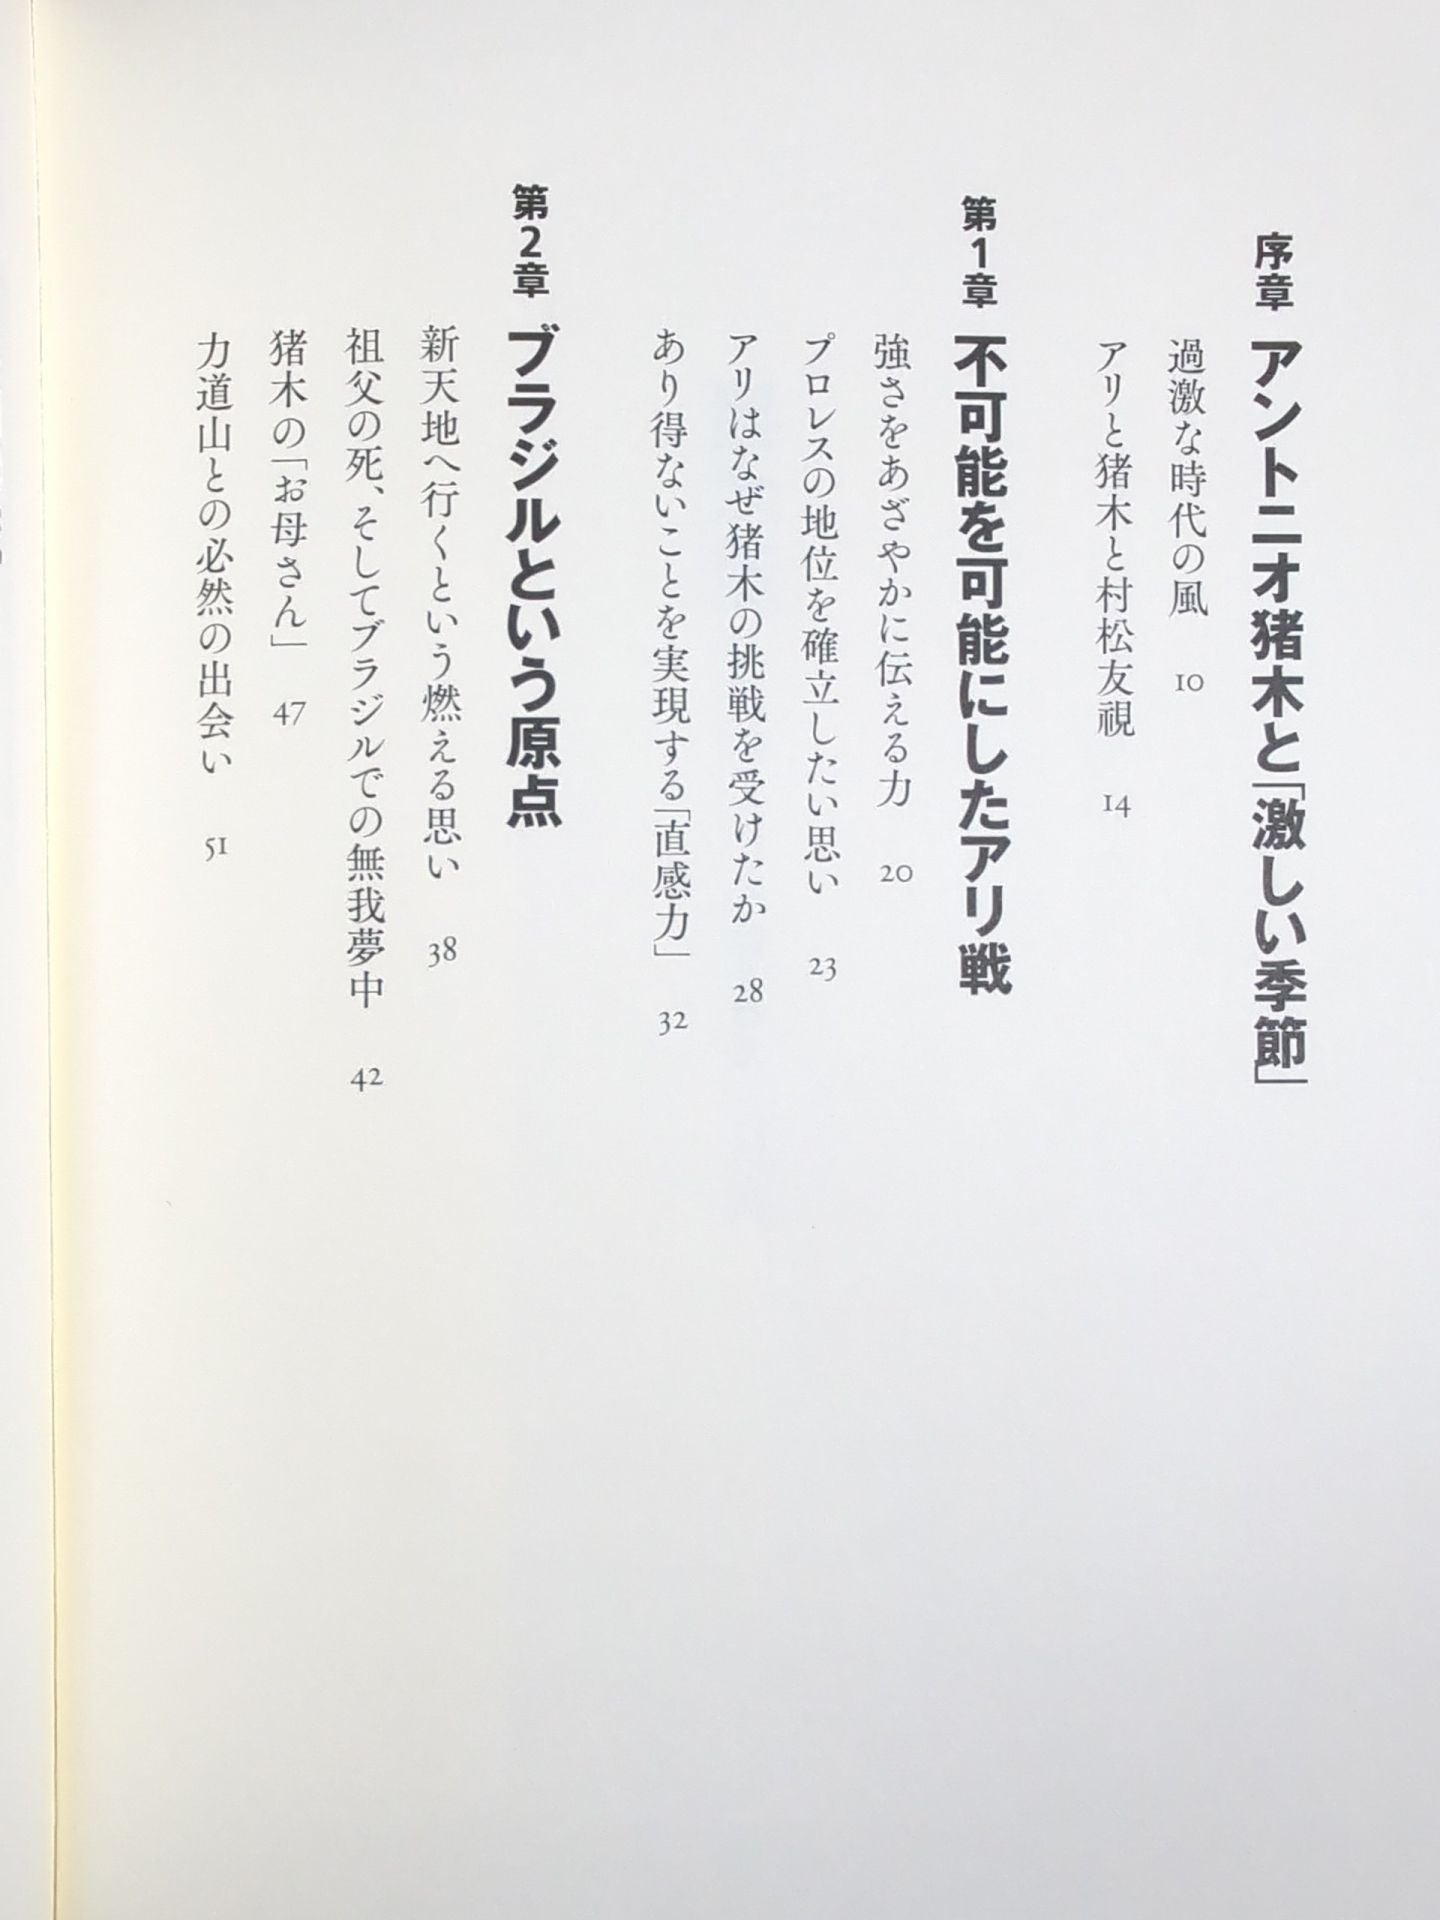 序章 アントニオ猪木と「激しい季節」
過激な時代の風 10
アリと猪木と村松友視 14
第1章 不可能を可能にしたアリ戦
強さをあざやかに伝える力 20
プロレスの地位を確立したい思い 23
アリはなぜ猪木の挑戦を受けたか 28
あり得ないことを実現する「直感力」 32
第2章 ブラジルという原点
新天地へ行くという燃える思い 38
祖父の死、そしてブラジルでの無我夢中 42
猪木の「お母さん」 47
力道山との必然の出会い 51